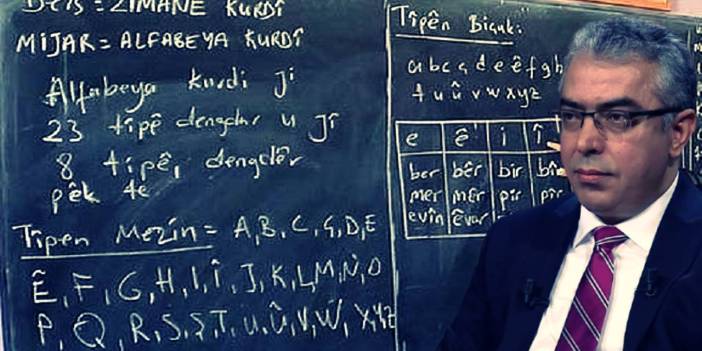 Ders = ZIMANÊ KURDÎ
MIJAR = ALFABEYA KURDÎ
Alfabeya kurdi ji
23 tîpê dengdar u ji
8 tîpê, dengdêr
pêk te
Tîpên Mezin = A, B, C, Ç, D, E
Ê, F, G, H, I, Î, J, K, L, M, N, O
P, Q, R, S, Ş, T, U, Û, V, W, X, Y, Z
Tîpên Biçuk:
a b c ç d e ê f g h
t u û v w x y z
e ê i î
ber bêr bir bîr
mer mêr pir pîr
evîn êvar